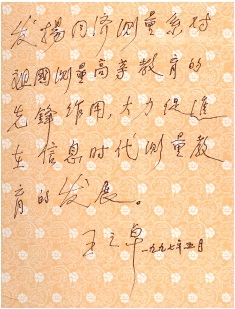 发扬同济测量系对
祖国测量高等教育的
先锋作用，大力促进
在信息时代测量教
育的发展。
王之卓
一九九七年五月